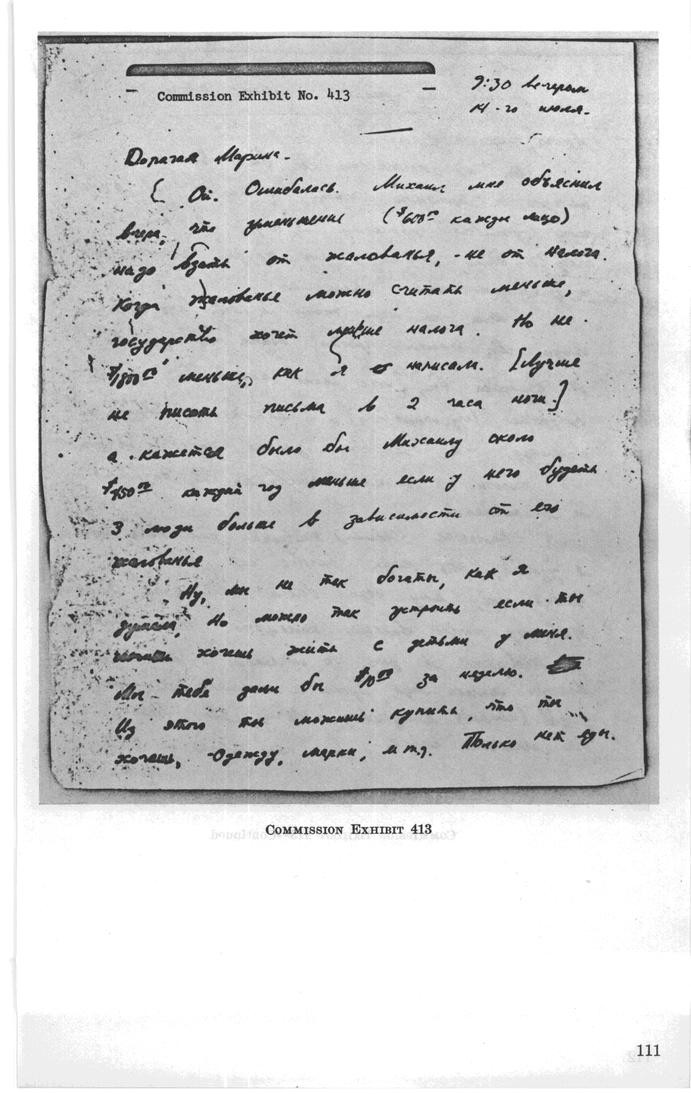 Commission Exhibit No. 413
9:30 вечером
14-го июля.
Дорогая Марина-
Ой. Ошибалась. Михаил мне объяснил
вчера, что уменьшение ($600.00 кажды лицо)
надо взать от жалованья, -не от налога.
Когда жалованье можно считать меньше,
государство хочет налога. Но не
$1800.00 меньше, как я написал. [Лучше
не писать письма в 2 часа ночи.]
а кажется было бы Михаилу около
$450.00 каждый год меньше если у него будеть
3 люди больше в зависимости от его
жалованья
Ну, мы не так богаты, как я
думала, Но можно так устроить если ты
хочешь жить с детьми у меня.
Мы тебе дали бы $10.00 за неделю.
Из этого ты можишь купить, что ты
хочешь, -Одежду, марки, и т.д. Только нет еды.
COMMISSION EXHIBIT 413
111